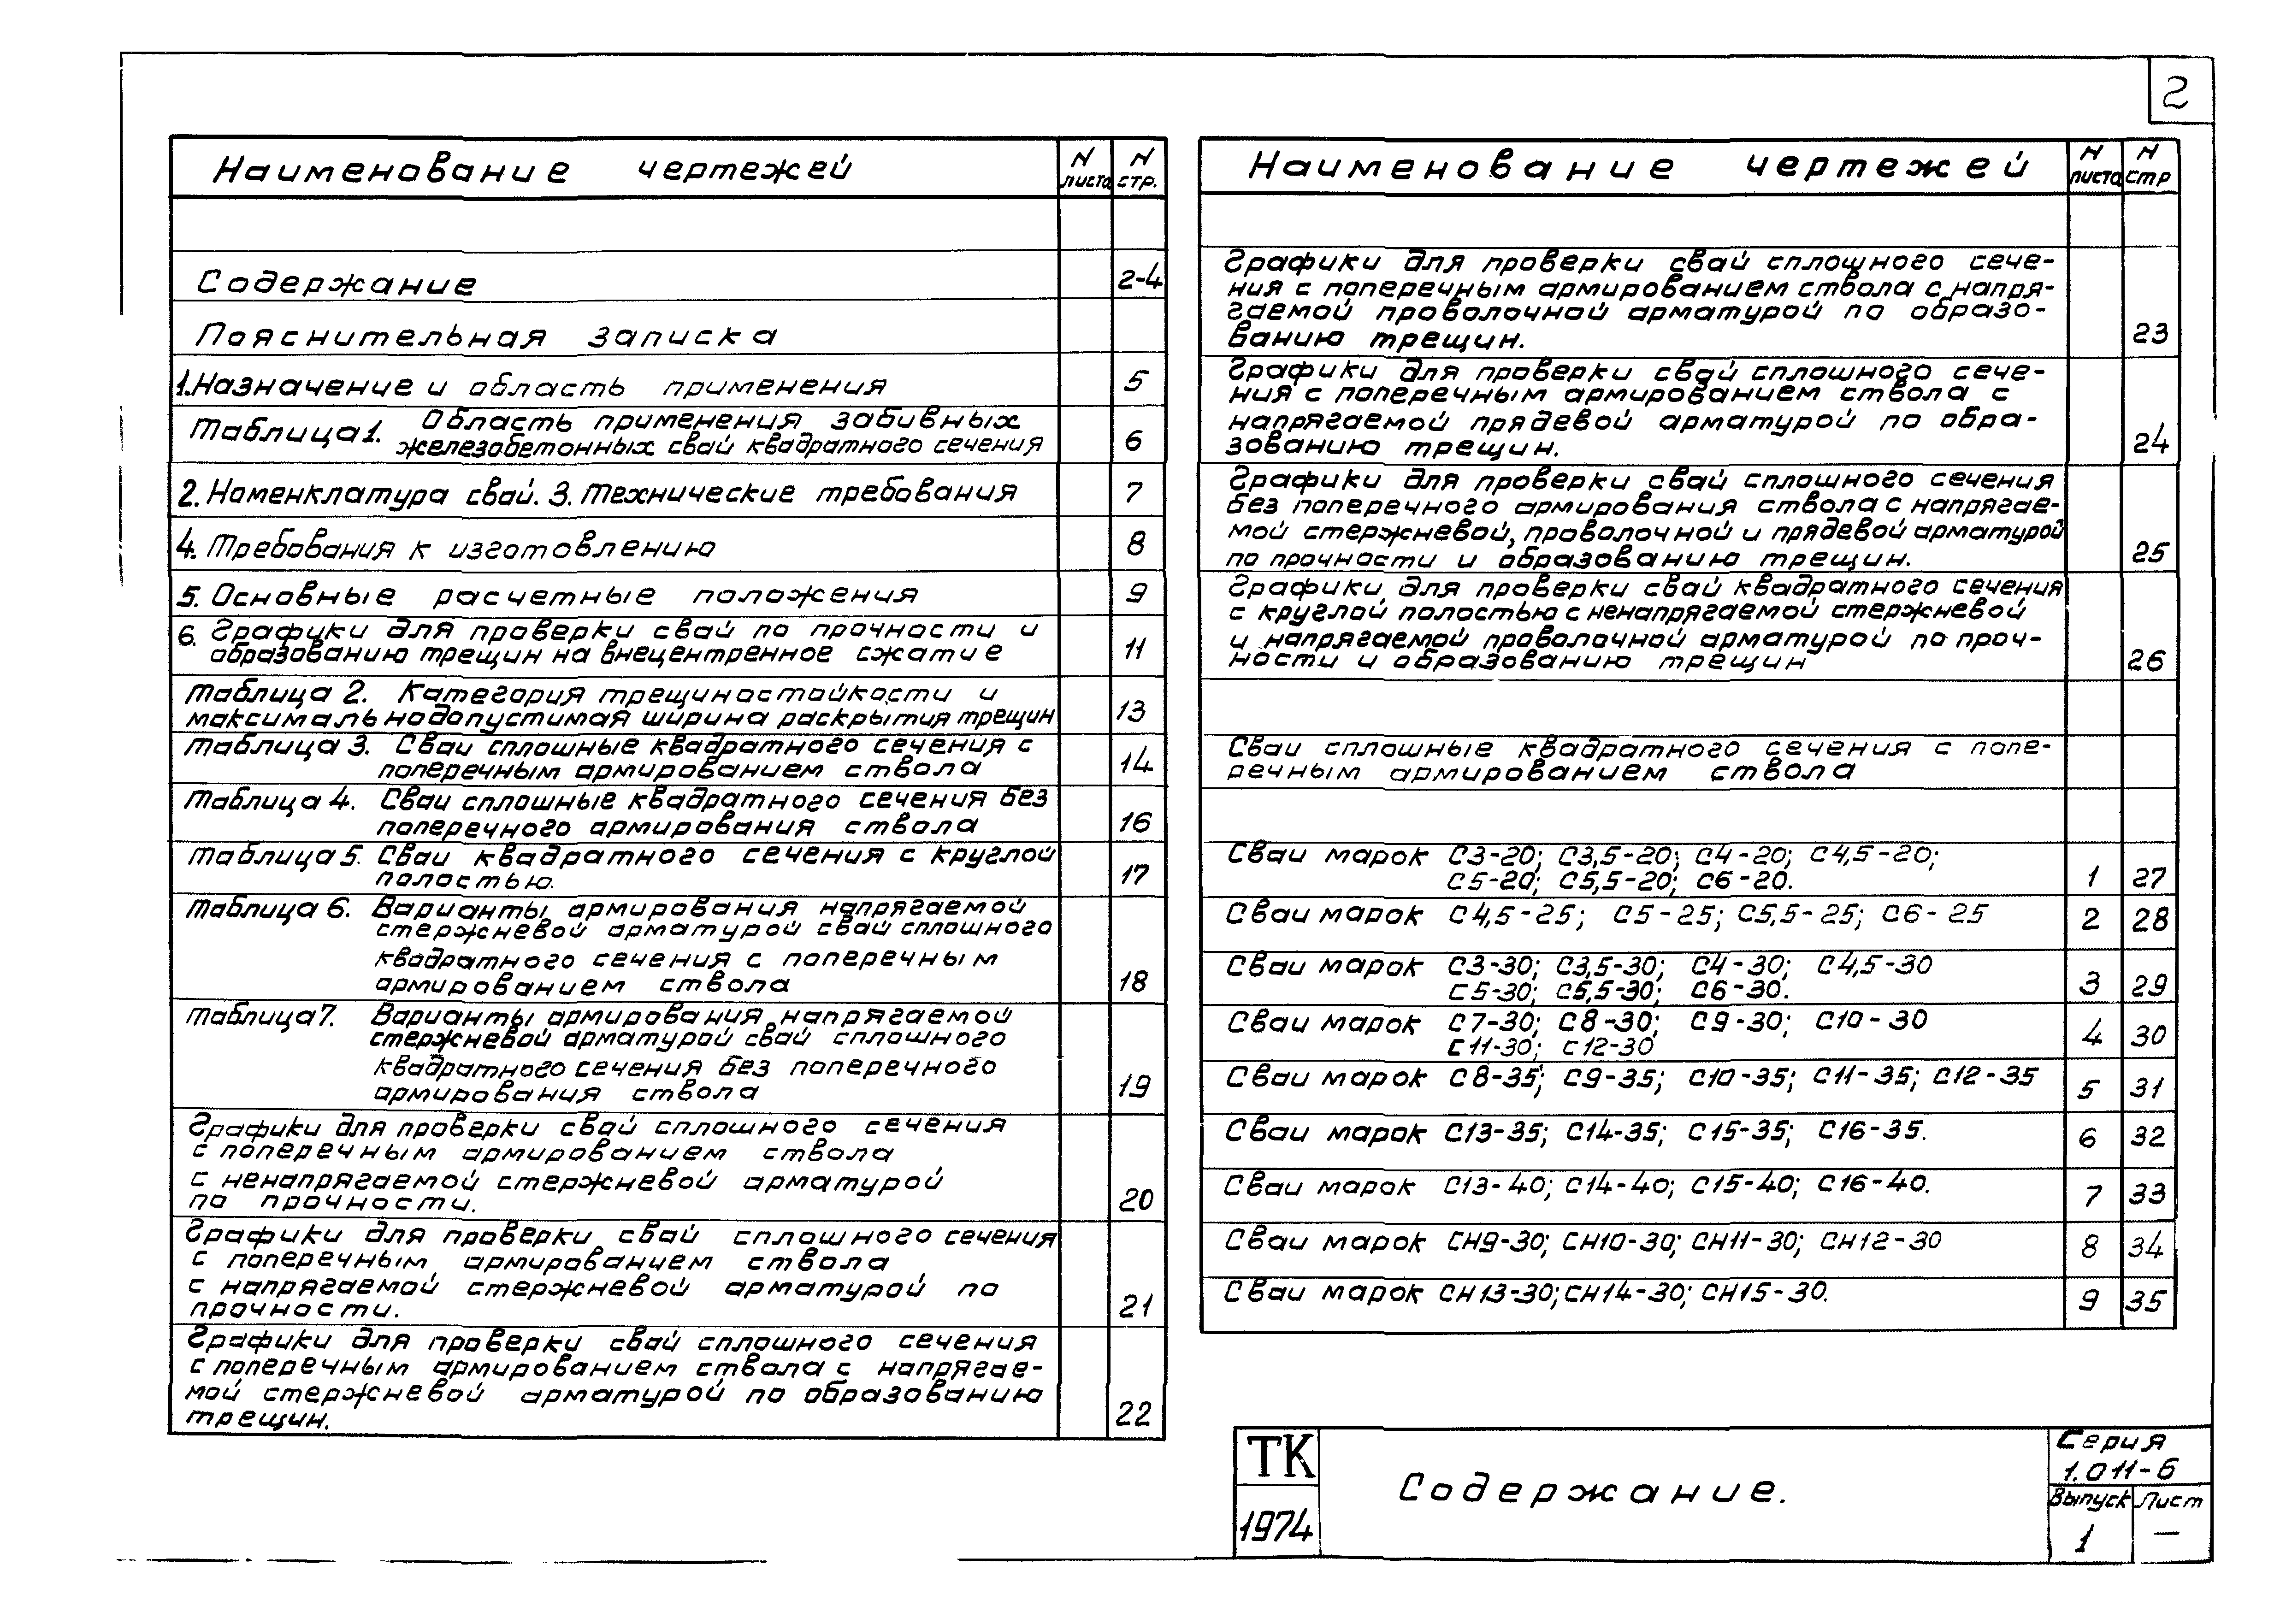 2
Наименование чертежей
N листа
N стр.
Содержание 2-4
Пояснительная записка
1. Назначение и область применения 5
Таблица 1. Область применения забивных
железобетонных свай квадратного сечения 6
2. Номенклатура свай. 3. Технические требования 7
4. Требования к изготовлению 8
5. Основные расчетные положения 9
6. Графики для проверки свай по прочности и
образованию трещин на внецентренное сжатие 11
Таблица 2. Категория трещиностойкости и
максимально допустимая ширина раскрытия трещин 13
Таблица 3. Сваи сплошные квадратного сечения с
поперечным армированием ствола 14
Таблица 4. Сваи сплошные квадратного сечения без
поперечного армирования ствола 16
Таблица 5. Сваи квадратного сечения с круглой
полостью. 17
Таблица 6. Варианты армирования напрягаемой
стержневой арматурой свай сплошного
квадратного сечения с поперечным
армированием ствола 18
Таблица 7. Варианты армирования напрягаемой
стержневой арматурой свай сплошного
квадратного сечения без поперечного
армирования ствола 19
Графики для проверки свай сплошного сечения
с поперечным армированием ствола
с ненапрягаемой стержневой арматурой
по прочности. 20
Графики для проверки свай сплошного сечения
с поперечным армированием ствола
с напрягаемой стержневой арматурой по
прочности. 21
Графики для проверки свай сплошного сечения
с поперечным армированием ствола с напрягае-
мой стержневой арматурой по образованию
трещин. 22
Наименование чертежей
N листа
N стр
Графики для проверки свай сплошного сече-
ния с поперечным армированием ствола с напря-
гаемой проволочной арматурой по образо-
ванию трещин. 23
Графики для проверки свай сплошного сече-
ния с поперечным армированием ствола с
напрягаемой прядевой арматурой по обра-
зованию трещин. 24
Графики для проверки свай сплошного сечения
без поперечного армирования ствола с напрягае-
мой стержневой, проволочной и прядевой арматурой
по прочности и образованию трещин. 25
Графики для проверки свай квадратного сечения
с круглой полостью с ненапрягаемой стержневой
и напрягаемой проволочной арматурой по проч-
ности и образованию трещин 26
Сваи сплошные квадратного сечения с попе-
речным армированием ствола
Сваи марок С3-20; С3,5-20; С4-20; С4,5-20;
С5-20; С5,5-20; С6-20. 1 27
Сваи марок С4,5-25; С5-25; С5,5-25; С6-25 2 28
Сваи марок С3-30; С3,5-30; С4-30; С4,5-30
С5-30; С5,5-30; С6-30. 3 29
Сваи марок С7-30; С8-30; С9-30; С10-30
С11-30; С12-30 4 30
Сваи марок С8-35; С9-35; С10-35; С11-35; С12-35 5 31
Сваи марок С13-35; С14-35; С15-35; С16-35. 6 32
Сваи марок С13-40; С14-40; С15-40; С16-40. 7 33
Сваи марок СН9-30; СН10-30; СН11-30; СН12-30 8 34
Сваи марок СН13-30; СН14-30; СН15-30. 9 35
ТК
1974
Содержание.
Серия
1.011-6
Выпуск Лист
1 —